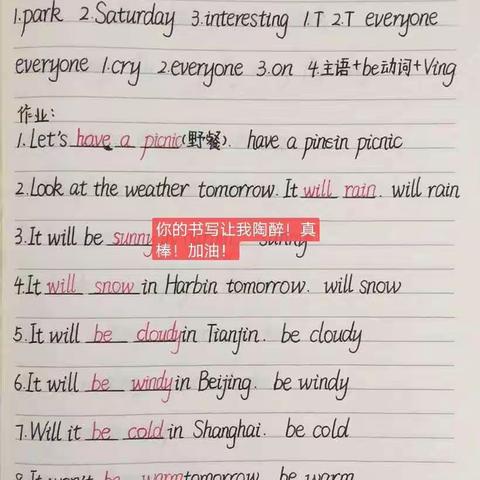 1.park 2.Saturday 3.interesting 1.T 2.T everyone
everyone 1.cry 2.everyone 3.on 4.主语+be动词+Ving
作业:
1.Let's have a picnic(野餐). have a pincin picnic
2.Look at the weather tomorrow. It will rain. will rain
3.It will be sunny sunny
你的书写让我陶醉!真
棒!加油!
4.It will snow in Harbin tomorrow. will snow
5.It will be cloudy in Tianjin. be cloudy
6.It will be windy in Beijing. be windy
7.Will it be cold in Shanghai. be cold
8.It won't be warm tomorrow. be warm